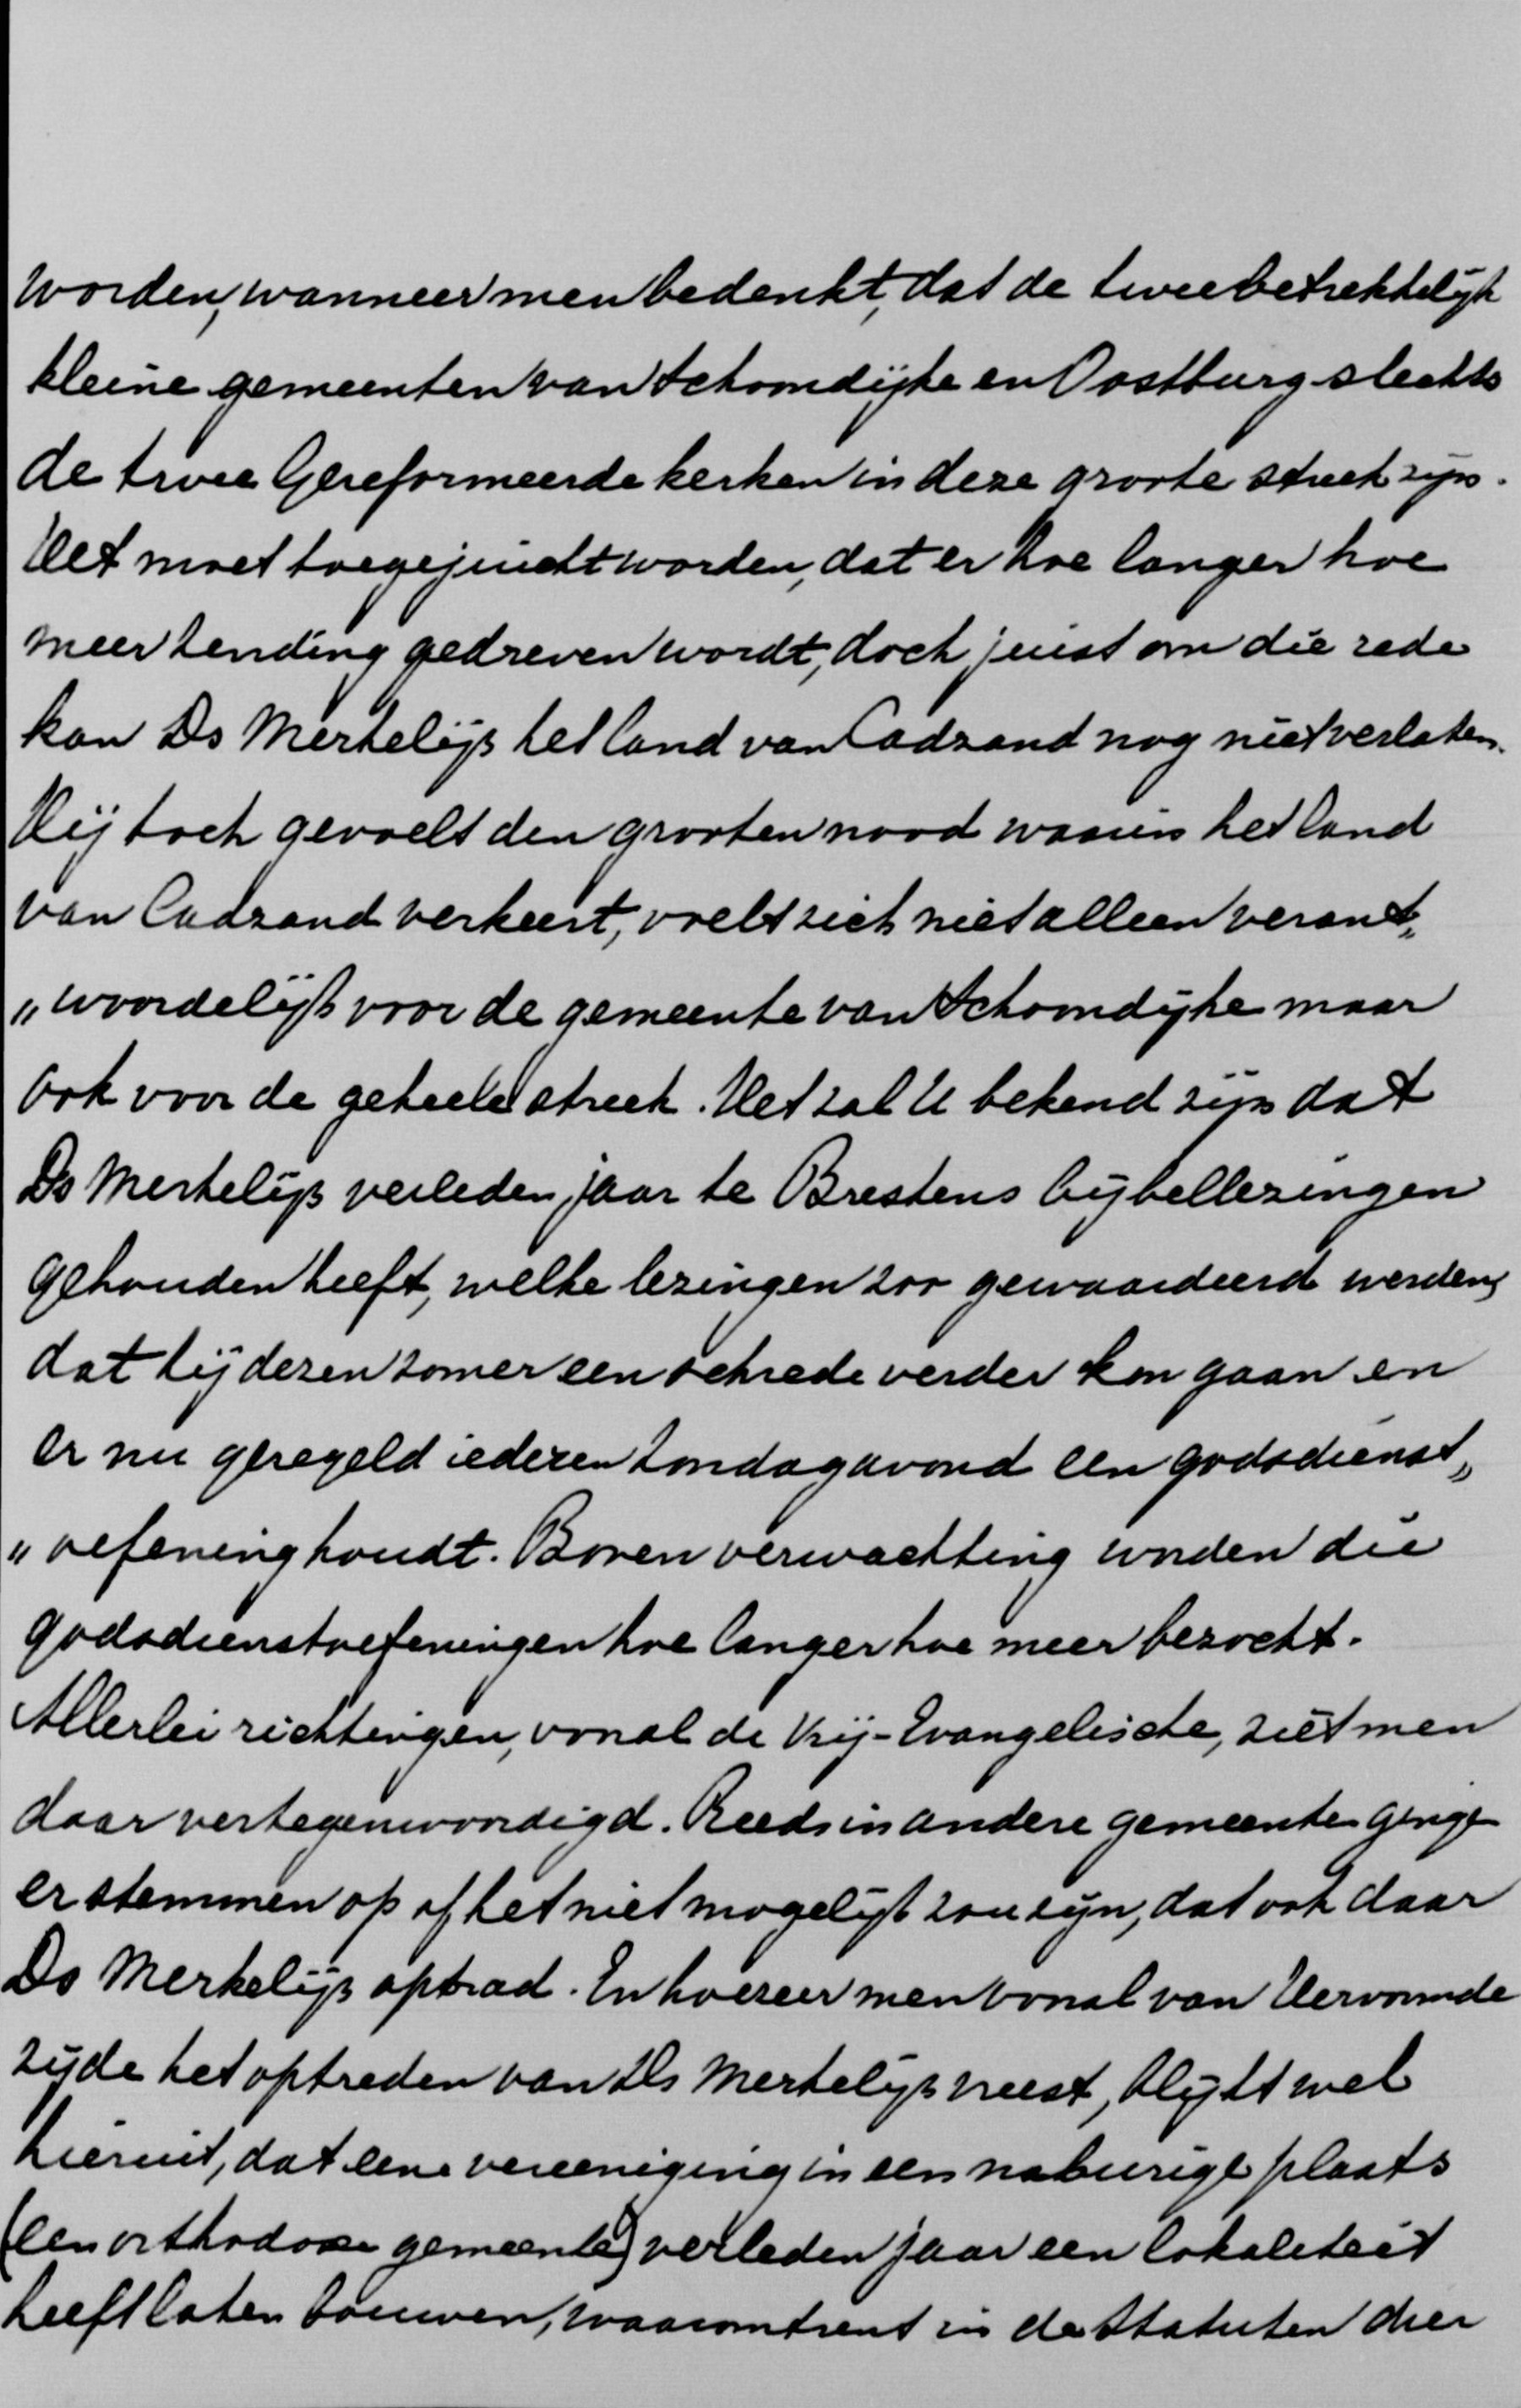 worden, wanneer men bedenkt, dat de twee betrekkelijk
kleine gemeenten van Schoondijke en Oostburg slechts
de twee Gereformeerde kerken in deze groote streek zijn.
Het moet toegejuicht worden, dat er hoe langer hoe
meer zending gedreven wordt, doch juist om die rede
kan Ds Merkelijn het land van Cadzand nog niet verlaten.
Hij toch gevoelt den grooten nood waarin het land
van Cadzand verkeert, voelt zich niet alleen verant„
„woordelijk voor de gemeente van Schoondijke maar
ook voor de geheele streek. Het zal U bekend zijn dat
Ds Merkelijn verleden jaar te Breskens bijbellezingen
gehouden heeft, welke lezingen zoo gewaardeerd werden,
dat hij dezen zomer een schrede verder kon gaan en
er nu geregeld iederen Zondagavond een godsdienst„
„oefening houdt. Boven verwachting worden die
godsdienstoefeningen hoe langer hoe meer bezocht.
Allerlei richtingen, vooral de Vrij-Evangelische, ziet men
daar vertegenwoordigd. Reeds in andere gemeenten gingen
er stemmen op of het niet mogelijk zou zijn, dat ook daar
Ds Merkelijn optrad. En hoezeer men vooral van Hervormde
zijde het optreden van Ds Merkelijn vreest, blijkt wel
hieruit, dat eene vereeniging in een naburige plaats
(een orthodoxe gemeente) verleden jaar een lokaliteit
heeft laten bouwen, waaromtrent in de Statuten dier